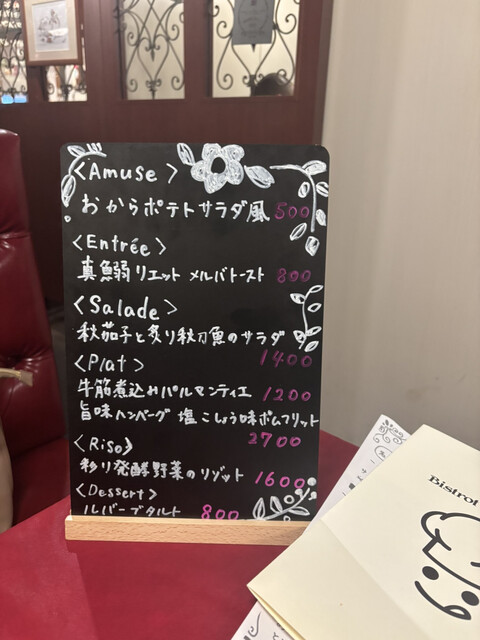 <Amuse>
おからポテトサラダ風 500
<Entrée>
真鰯リエット メルバトースト 800
<Salade>
秋茄子と炙り秋刀魚のサラダ
1400
<Plat>
牛筋煮込みパルマンティエ 1200
旨味ハンバーグ 塩こしょう味ポムフリット
2700
<Riso>
彩り発酵野菜のリゾット 1600
<Dessert>
ルバーブタルト 800
Bistrot